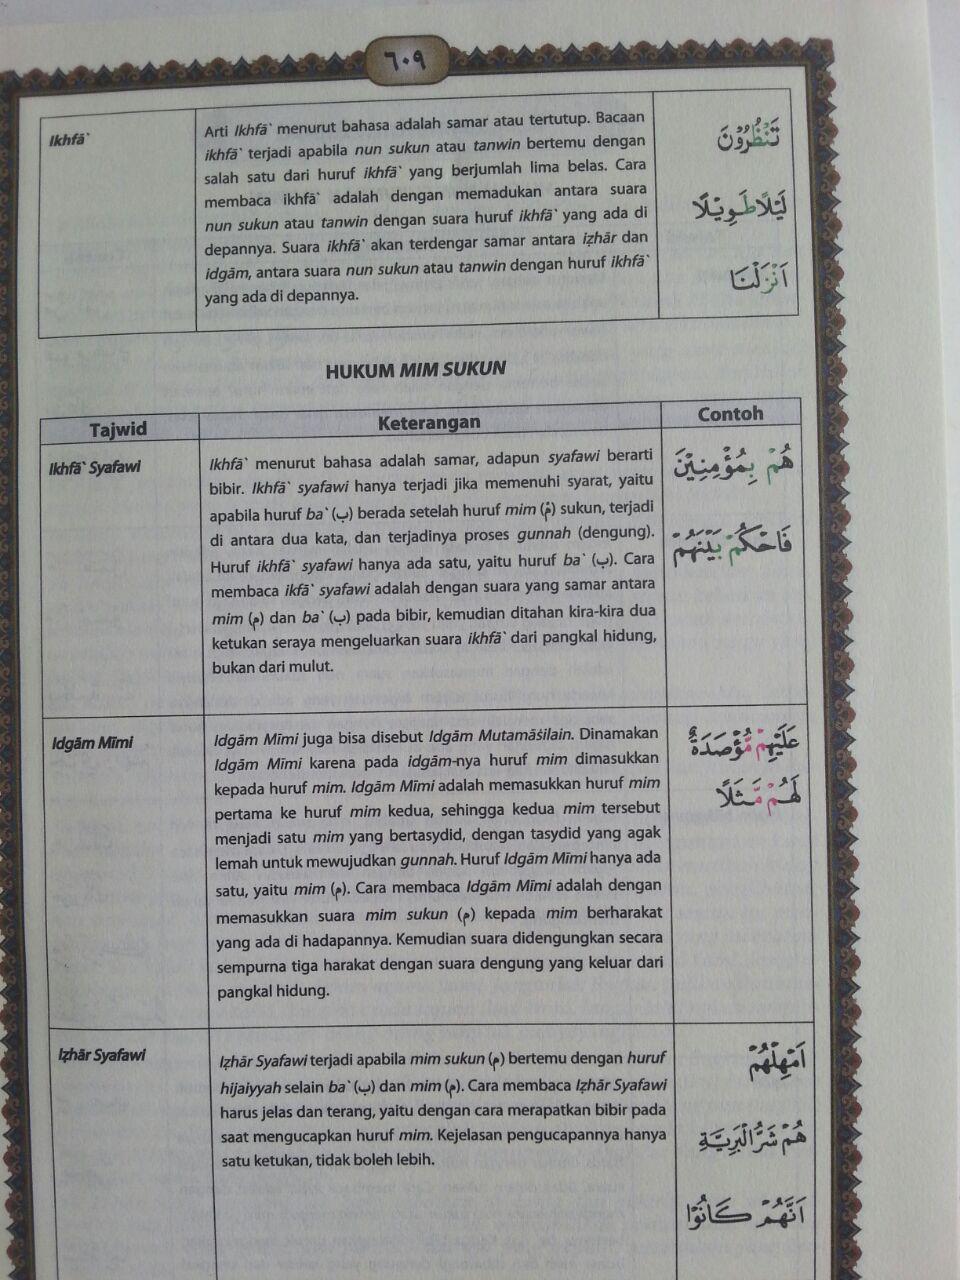 ٦٠٩
Ikhfā`
Arti Ikhfā` menurut bahasa adalah samar atau tertutup. Bacaan
ikhfā` terjadi apabila nun sukun atau tanwin bertemu dengan
salah satu dari huruf ikhfā` yang berjumlah lima belas. Cara
membaca ikhfā` adalah dengan memadukan antara suara
nun sukun atau tanwin dengan suara huruf ikhfā` yang ada di
depannya. Suara ikhfā` akan terdengar samar antara iẓhār dan
idgām, antara suara nun sukun atau tanwin dengan huruf ikhfā`
yang ada di depannya.
تَنْظُرُوْنَ
لَيْلًا طَوِيْلًا
اَنْزَلْنَا
HUKUM MIM SUKUN
Tajwid
Keterangan
Contoh
Ikhfā` Syafawi
Ikhfā` menurut bahasa adalah samar, adapun syafawi berarti
bibir. Ikhfā` syafawi hanya terjadi jika memenuhi syarat, yaitu
apabila huruf ba` (ب) berada setelah huruf mim (مْ) sukun, terjadi
di antara dua kata, dan terjadinya proses gunnah (dengung).
Huruf ikhfā` syafawi hanya ada satu, yaitu huruf ba` (ب). Cara
membaca ikfā` syafawi adalah dengan suara yang samar antara
mim (م) dan ba` (ب) pada bibir, kemudian ditahan kira-kira dua
ketukan seraya mengeluarkan suara ikhfā` dari pangkal hidung,
bukan dari mulut.
هُمْ بِمُؤْمِنِيْنَ
فَاحْكُمْ بَيْنَهُمْ
Idgām Mīmi
Idgām Mīmi juga bisa disebut Idgām Mutamāṡilain. Dinamakan
Idgām Mīmi karena pada idgām-nya huruf mim dimasukkan
kepada huruf mim. Idgām Mīmi adalah memasukkan huruf mim
pertama ke huruf mim kedua, sehingga kedua mim tersebut
menjadi satu mim yang bertasydid, dengan tasydid yang agak
lemah untuk mewujudkan gunnah. Huruf Idgām Mīmi hanya ada
satu, yaitu mim (م). Cara membaca Idgām Mīmi adalah dengan
memasukkan suara mim sukun (م) kepada mim berharakat
yang ada di hadapannya. Kemudian suara didengungkan secara
sempurna tiga harakat dengan suara dengung yang keluar dari
pangkal hidung.
عَلَيْهِمْ مُّؤْصَدَةٌ
لَهُمْ مَّثَلًا
Iẓhār Syafawi
Iẓhār Syafawi terjadi apabila mim sukun (م) bertemu dengan huruf
hijaiyyah selain ba` (ب) dan mim (م). Cara membaca Iẓhār Syafawi
harus jelas dan terang, yaitu dengan cara merapatkan bibir pada
saat mengucapkan huruf mim. Kejelasan pengucapannya hanya
satu ketukan, tidak boleh lebih.
اَمْهِلْهُمْ
هُمْ شَرُّ الْبَرِيَّةِ
اَنَّهُمْ كَانُوْا